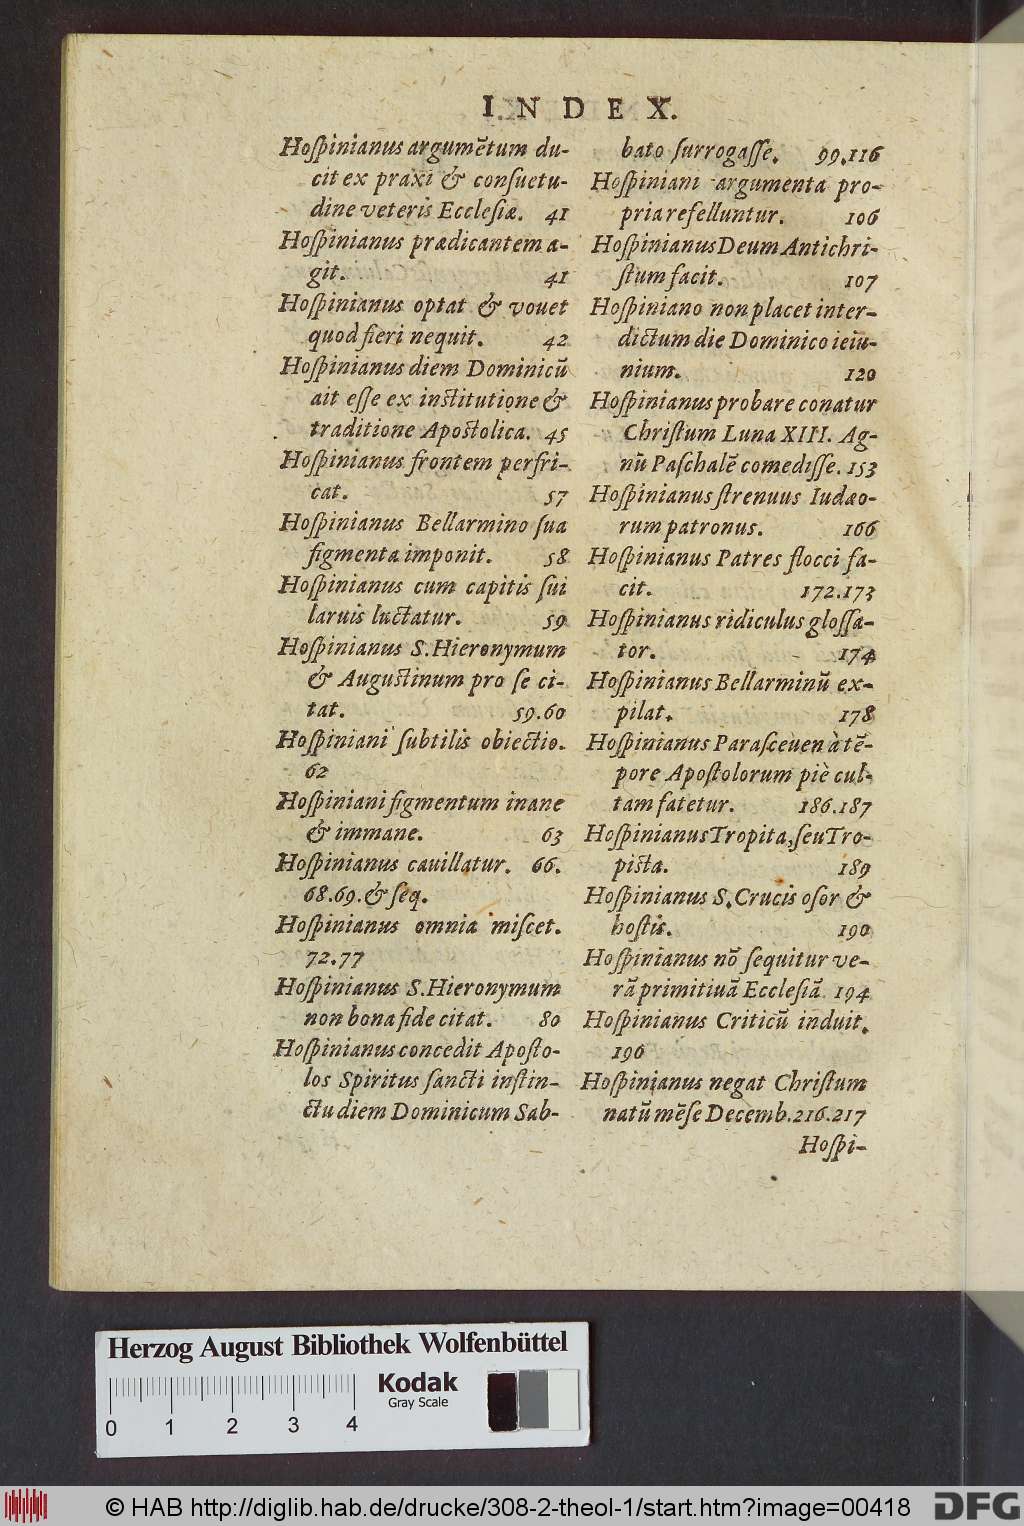 INDEX.
Hoſpinianus argumẽtum du-
cit ex praxi & conſuetu-
dine veteris Eccleſiæ. 41
Hoſpinianus prædicantem a-
git. 41
Hoſpinianus optat & vouet
quod fieri nequit. 42
Hoſpinianus diem Dominicũ
ait eſſe ex inſtitutione &
traditione Apoſtolica. 45
Hoſpinianus frontem perfri-
cat. 57
Hoſpinianus Bellarmino ſua
figmenta imponit. 58
Hoſpinianus cum capitis ſui
laruis luctatur. 59
Hoſpinianus S. Hieronymum
& Auguſtinum pro ſe ci-
tat. 59.60
Hoſpiniani ſubtilis obiectio.
62
Hoſpiniani figmentum inane
& immane. 63
Hoſpinianus cauillatur. 66.
68.69. & ſeq.
Hoſpinianus omnia miſcet.
72.77
Hoſpinianus S. Hieronymum
non bona fide citat. 80
Hoſpinianus concedit Apoſto-
los Spiritus ſancti inſtin-
ctu diem Dominicum Sab-
bato ſurrogaſſe. 99.116
Hoſpiniani argumenta pro-
pria refelluntur. 106
Hoſpinianus Deum Antichri-
ſtum facit. 107
Hoſpiniano non placet inter-
dictum die Dominico ieiu-
nium. 120
Hoſpinianus probare conatur
Chriſtum Luna XIII. Ag-
nũ Paſchalẽ comediſſe. 153
Hoſpinianus ſtrenuus Iudæo-
rum patronus. 166
Hoſpinianus Patres flocci fa-
cit. 172.173
Hoſpinianus ridiculus gloſſa-
tor. 174
Hoſpinianus Bellarminũ ex-
pilat. 178
Hoſpinianus Paraſceuen à tẽ-
pore Apoſtolorum piè cul-
tam fatetur. 186.187
Hoſpinianus Tropita, ſeu Tro-
piſta. 189
Hoſpinianus S. Crucis oſor &
hoſtis. 190
Hoſpinianus nõ ſequitur ve-
rã primitiuã Eccleſiã. 194
Hoſpinianus Criticũ induit.
196
Hoſpinianus negat Chriſtum
natũ mẽſe Decemb. 216.217
Hoſpi-
Herzog August Bibliothek Wolfenbüttel
Kodak
Gray Scale
0 1 2 3 4
© HAB http://diglib.hab.de/drucke/308-2-theol-1/start.htm?image=00418 DFG